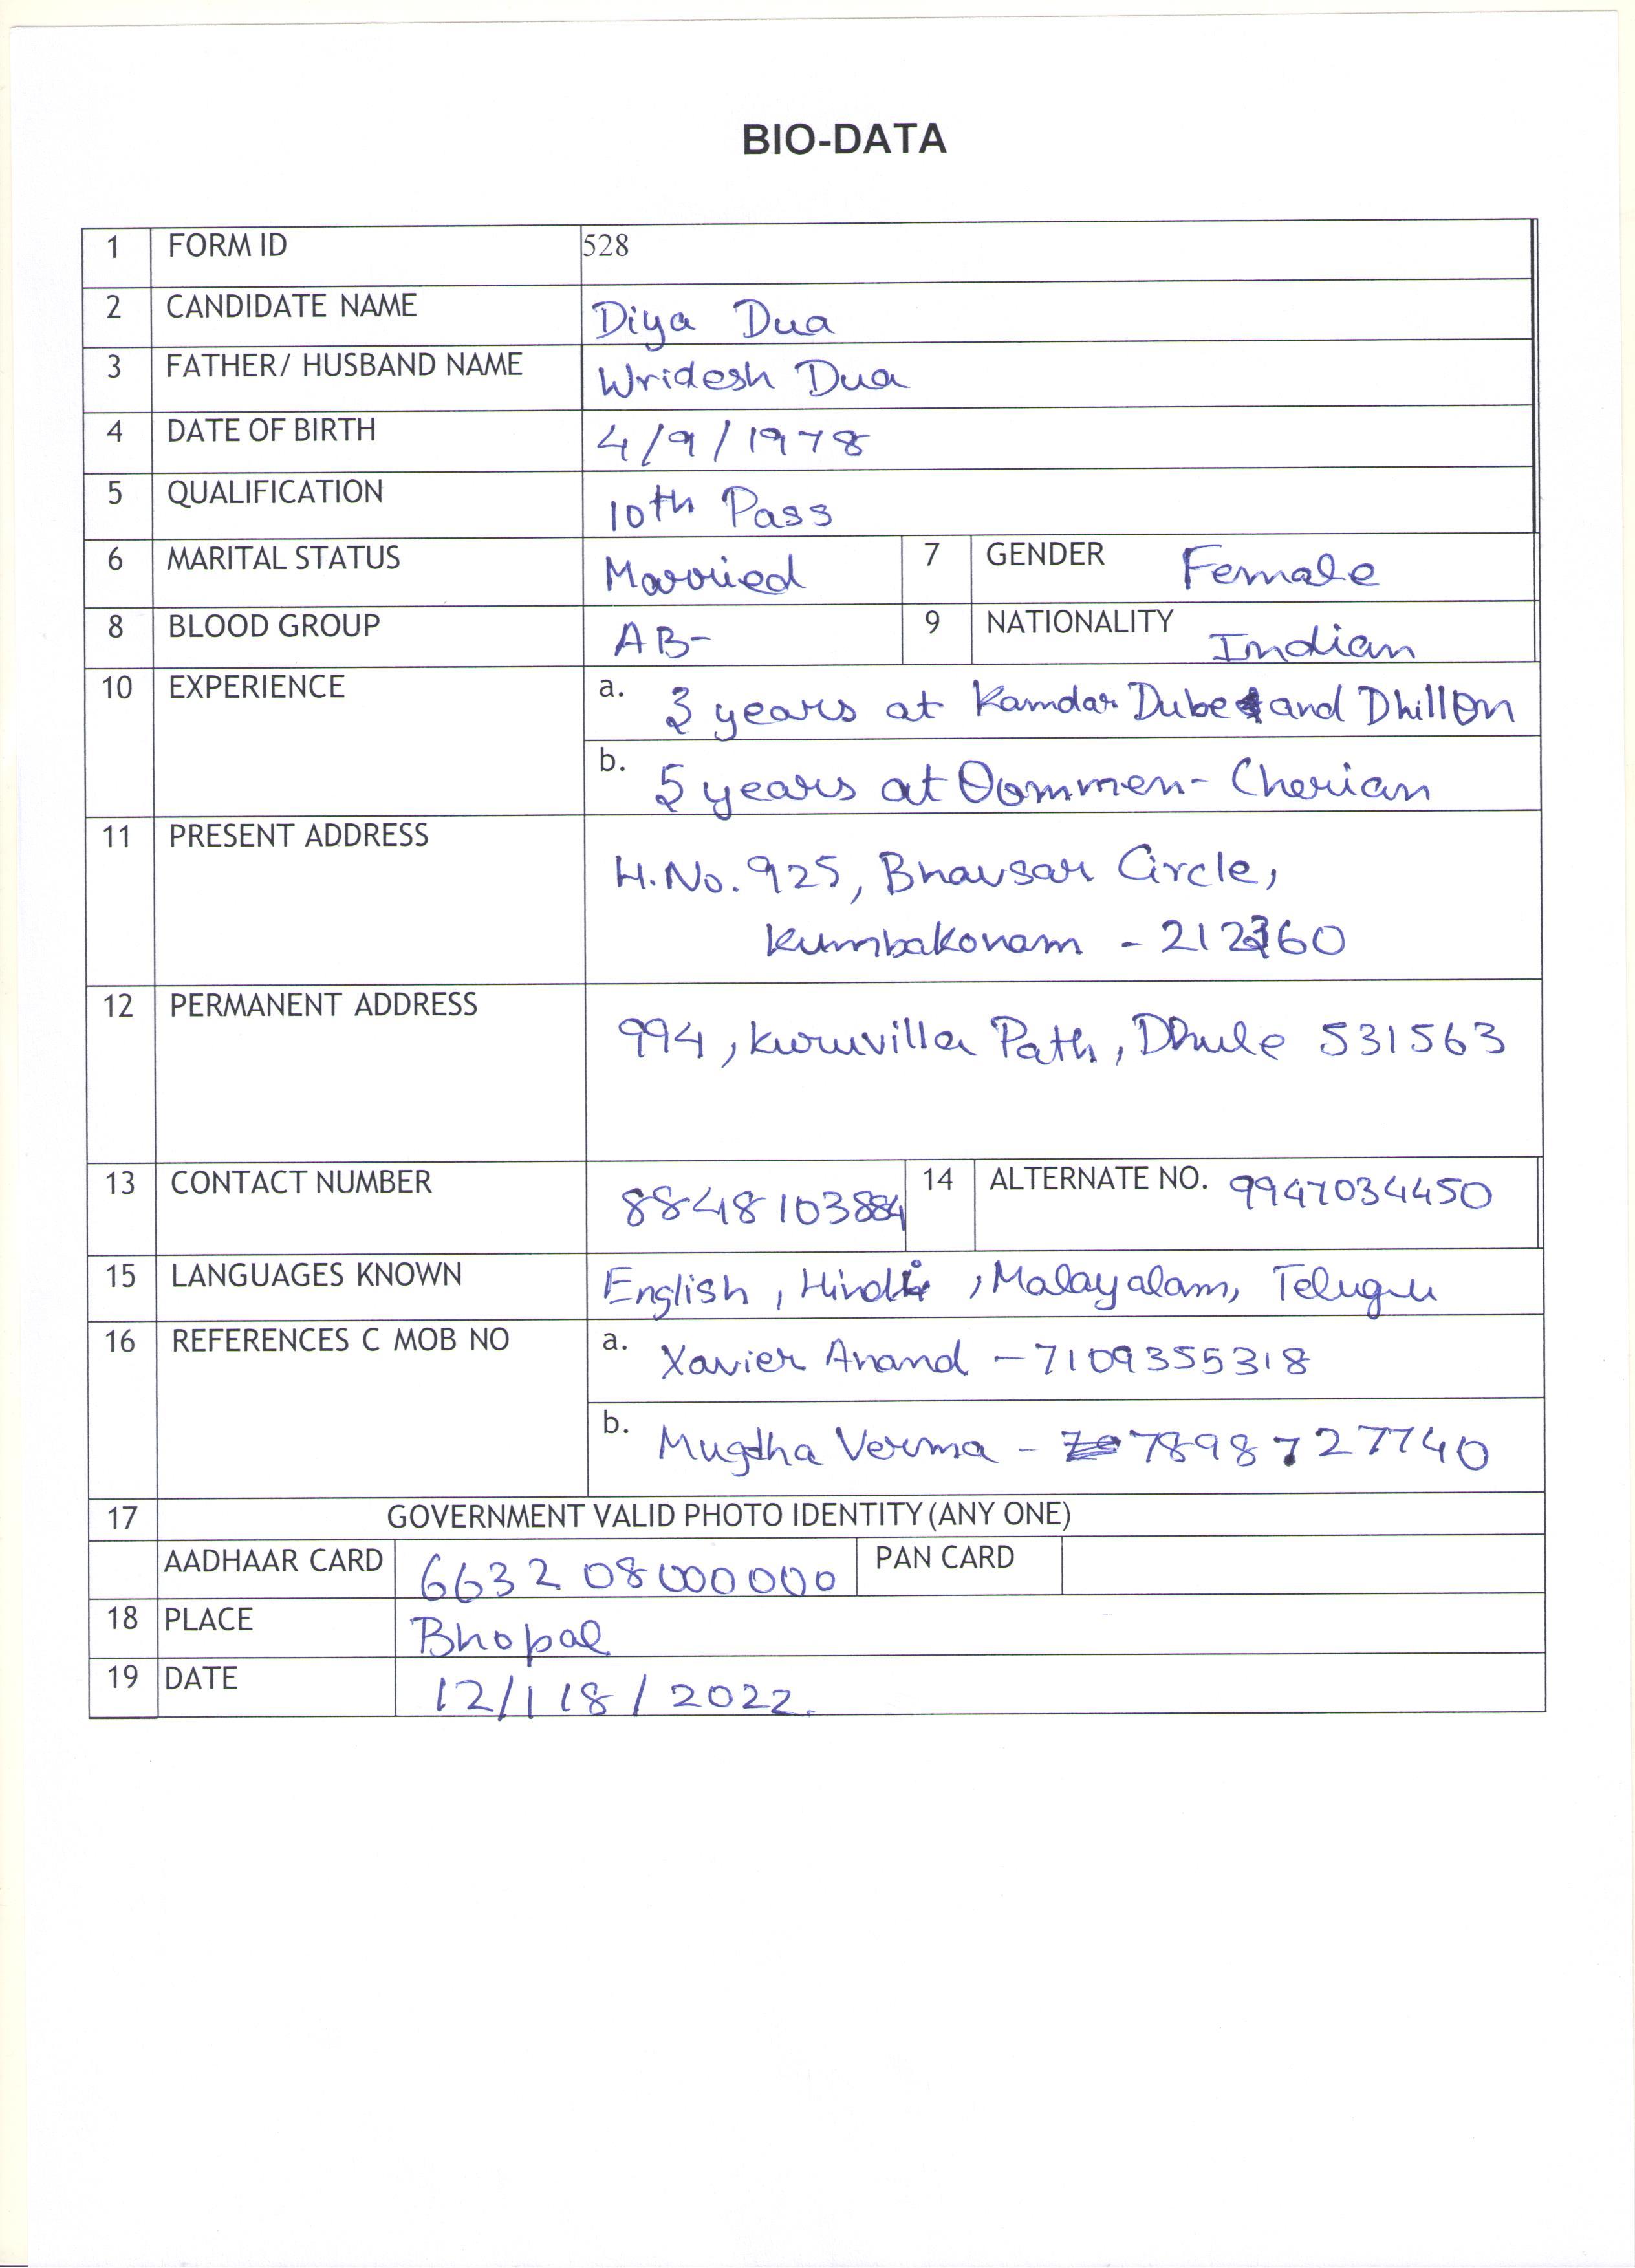 BIO-DATA
1 FORM ID 528
2 CANDIDATE NAME Diya Dua
3 FATHER/ HUSBAND NAME Wridesh Dua
4 DATE OF BIRTH 4/9/1978
5 QUALIFICATION 10th Pass
6 MARITAL STATUS Married 7 GENDER Female
8 BLOOD GROUP AB- 9 NATIONALITY Indian
10 EXPERIENCE a. 3 years at Kamdar Dube and Dhillon
b. 5 years at Oommen- Cherian
11 PRESENT ADDRESS H.No. 925, Bhavsar Circle,
Kumbakonam -
12 PERMANENT ADDRESS 994, Kuruvilla Path, Dhule 531563
13 CONTACT NUMBER 8848103884 14 ALTERNATE NO. 9947034450
15 LANGUAGES KNOWN English, Hindi, Malayalam, Telugu
16 REFERENCES C MOB NO a. Xavier Anand - 7109355318
b. Mugdha Verma - 7898727740
17 GOVERNMENT VALID PHOTO IDENTITY (ANY ONE)
AADHAAR CARD 6632 08000000 PAN CARD
18 PLACE Bhopal
19 DATE 12/118/2022.